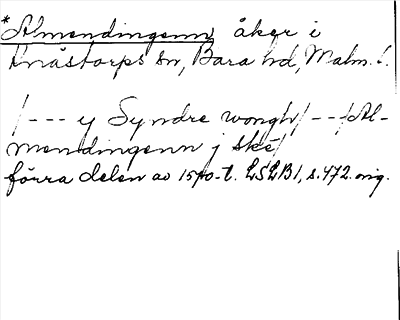 *Almendingenn, åker i
Knästorps sn, Bara hd, Malm. l.
/--- y Syndre wongh/--/Al-
mendingenn j ske/
förra delen av 1570-t. LSLB1, s. 472. orig.